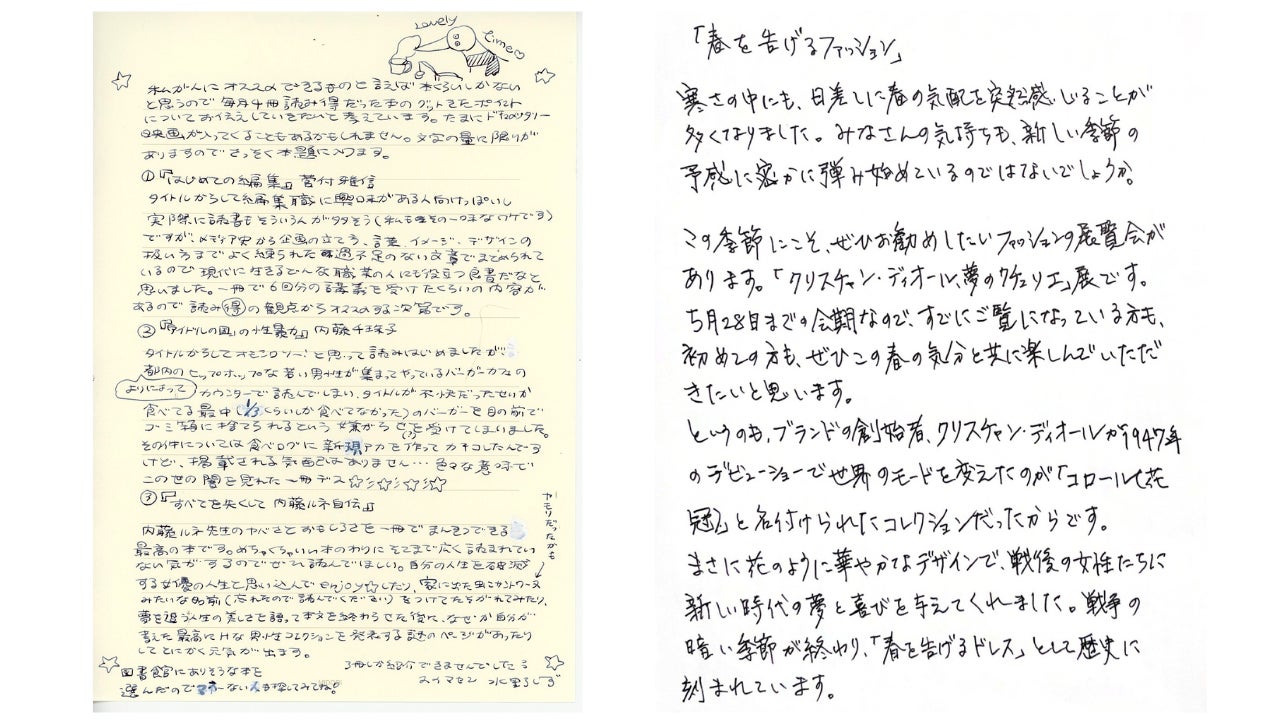 Lovely
time♡
私がんにオススメできるものと言えば本くらいしかない
と思うので毎月4冊読み得だった本のグッときたポイント
についてお伝えしていきたいと考えています。たまにドキュメンタリー
映画が入ってくることもあるかもしれません。文字の量に限りが
ありますのでさっそく本題に入ります。
①『はじめての編集』菅付雅信
タイトルからして編集職に興味がある人向けっぽいし
実際に読書もそういう人が多そう(私もその一味なワケです)
ですが、メディア史から企画の立て方、言葉、イメージ、デザインの
扱い方までよく練られた過不足のない文章でまとめられて
いるので現代に生きるどんな職業の人にも役立つ良書だなと
思いました。一冊で6回分の講義を受けたくらいの内容が
あるので読み得の観点からオススメする次第です。
②『「アイドルの国」の性暴力』内藤千珠子
タイトルからしてオモシロソー!と思って読みはじめましたが、
都内のヒップホップな若い男性が集まってやっているバーガーカフェの
よりによって
カウンターで読んでしまい、タイトルが不快だったせいか
食べてる最中(1/3くらいしか食べてなかった)のバーガーを目の前で
ゴミ箱に捨てられるという嫌がらせを受けてしまいました。
その件については食べログに新規アカを作ってカキコしたんです
けど、掲載される気配はありません…色々な意味で
この世の闇を見れた一冊デス☆彡☆彡☆彡☆
③『すべてを失くして 内藤ルネ自伝』
内藤ルネ先生のヤバさとおもしろさを一冊でまんきつできる
最高の本です。めちゃくちゃいい本のわりにそこまで広く読まれてい
ない気がするのでぜひ読んでほしい。自分の人生を破滅
する女優の人生と思い込んでenjoy☆したり、家に出た虫にカントワーヌ
みたいな名前(忘れたので読んでください)をつけてたそがれてみたり、
ヤモリだったかも
夢を追う人生の美しさを語って本文を終わらせた後に、なぜか自分が
考えた最高にHな男性コレクションを発表する謎のページがあったり
してとにかく元気が出ます。
図書館にありそうな本を
選んだのでお金ない人も探してみてね!
3冊しか紹介できませんでした
スイマセン 水野しず
「春を告げるファッション」
寒さの中にも、日差しに春の気配を突然感じることが
多くなりました。みなさんの気持ちも、新しい季節の
予感に密かに弾み始めているのではないでしょうか。
この季節にこそ、ぜひお勧めしたいファッションの展覧会が
あります。「クリスチャン・ディオール、夢のクチュリエ」展です。
5月28日までの会期なので、すでにご覧になっている方も、
初めての方も、ぜひこの春の気分と共に楽しんでいただ
きたいと思います。
というのも、ブランドの創始者、クリスチャン・ディオールが1947年
のデビューショーで世界のモードを変えたのが「コロール(花
冠)」と名付けられたコレクションだったからです。
まさに花のように華やかなデザインで、戦後の女性たちに
新しい時代の夢と喜びを与えてくれました。戦争の
暗い季節が終わり、「春を告げるドレス」として歴史に
刻まれています。